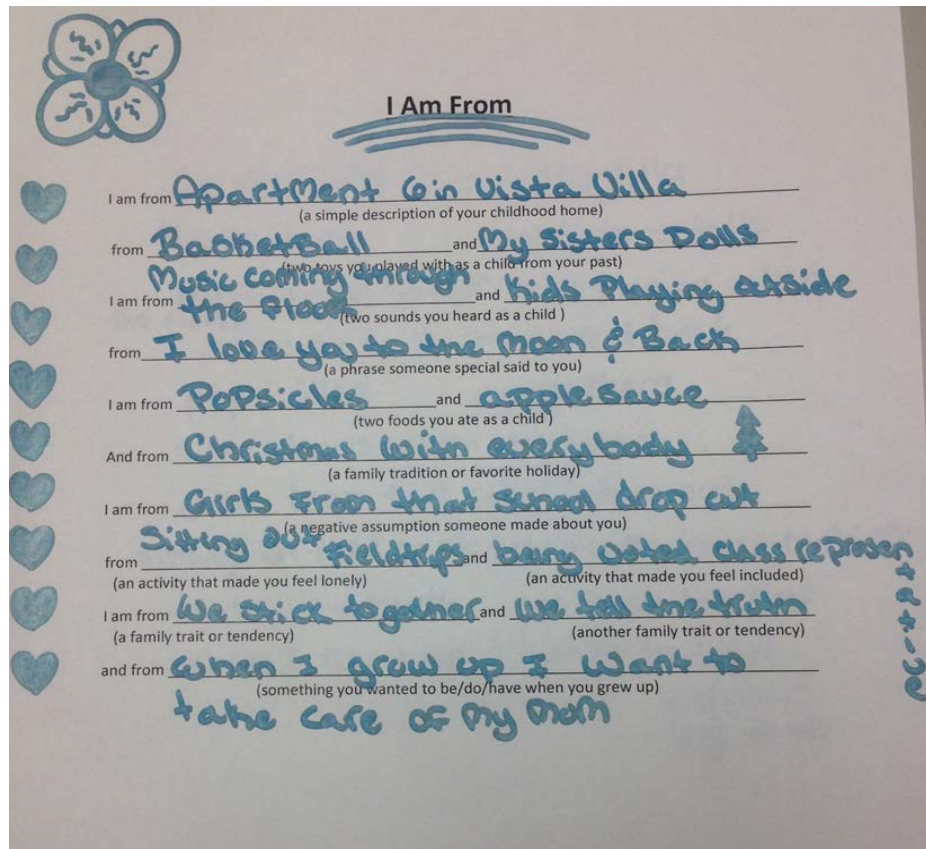 I Am From
I am from Apartment 6 in Vista Villa
(a simple description of your childhood home)
from BasketBall and My Sisters Dolls
(two toys you played with as a child from your past)
I am from Music coming through the floor and Kids Playing outside
(two sounds you heard as a child )
from I love you to the Moon & Back
(a phrase someone special said to you)
I am from Popsicles and applesauce
(two foods you ate as a child )
And from Christmas with everybody
(a family tradition or favorite holiday)
I am from Girls From that School drop out
(a negative assumption someone made about you)
from Sitting out Fieldtrips and being voted class representative
(an activity that made you feel lonely) (an activity that made you feel included)
I am from We Stick together and We tell the truth
(a family trait or tendency) (another family trait or tendency)
and from When I grow up I want to
(something you wanted to be/do/have when you grew up)
take care of my mom